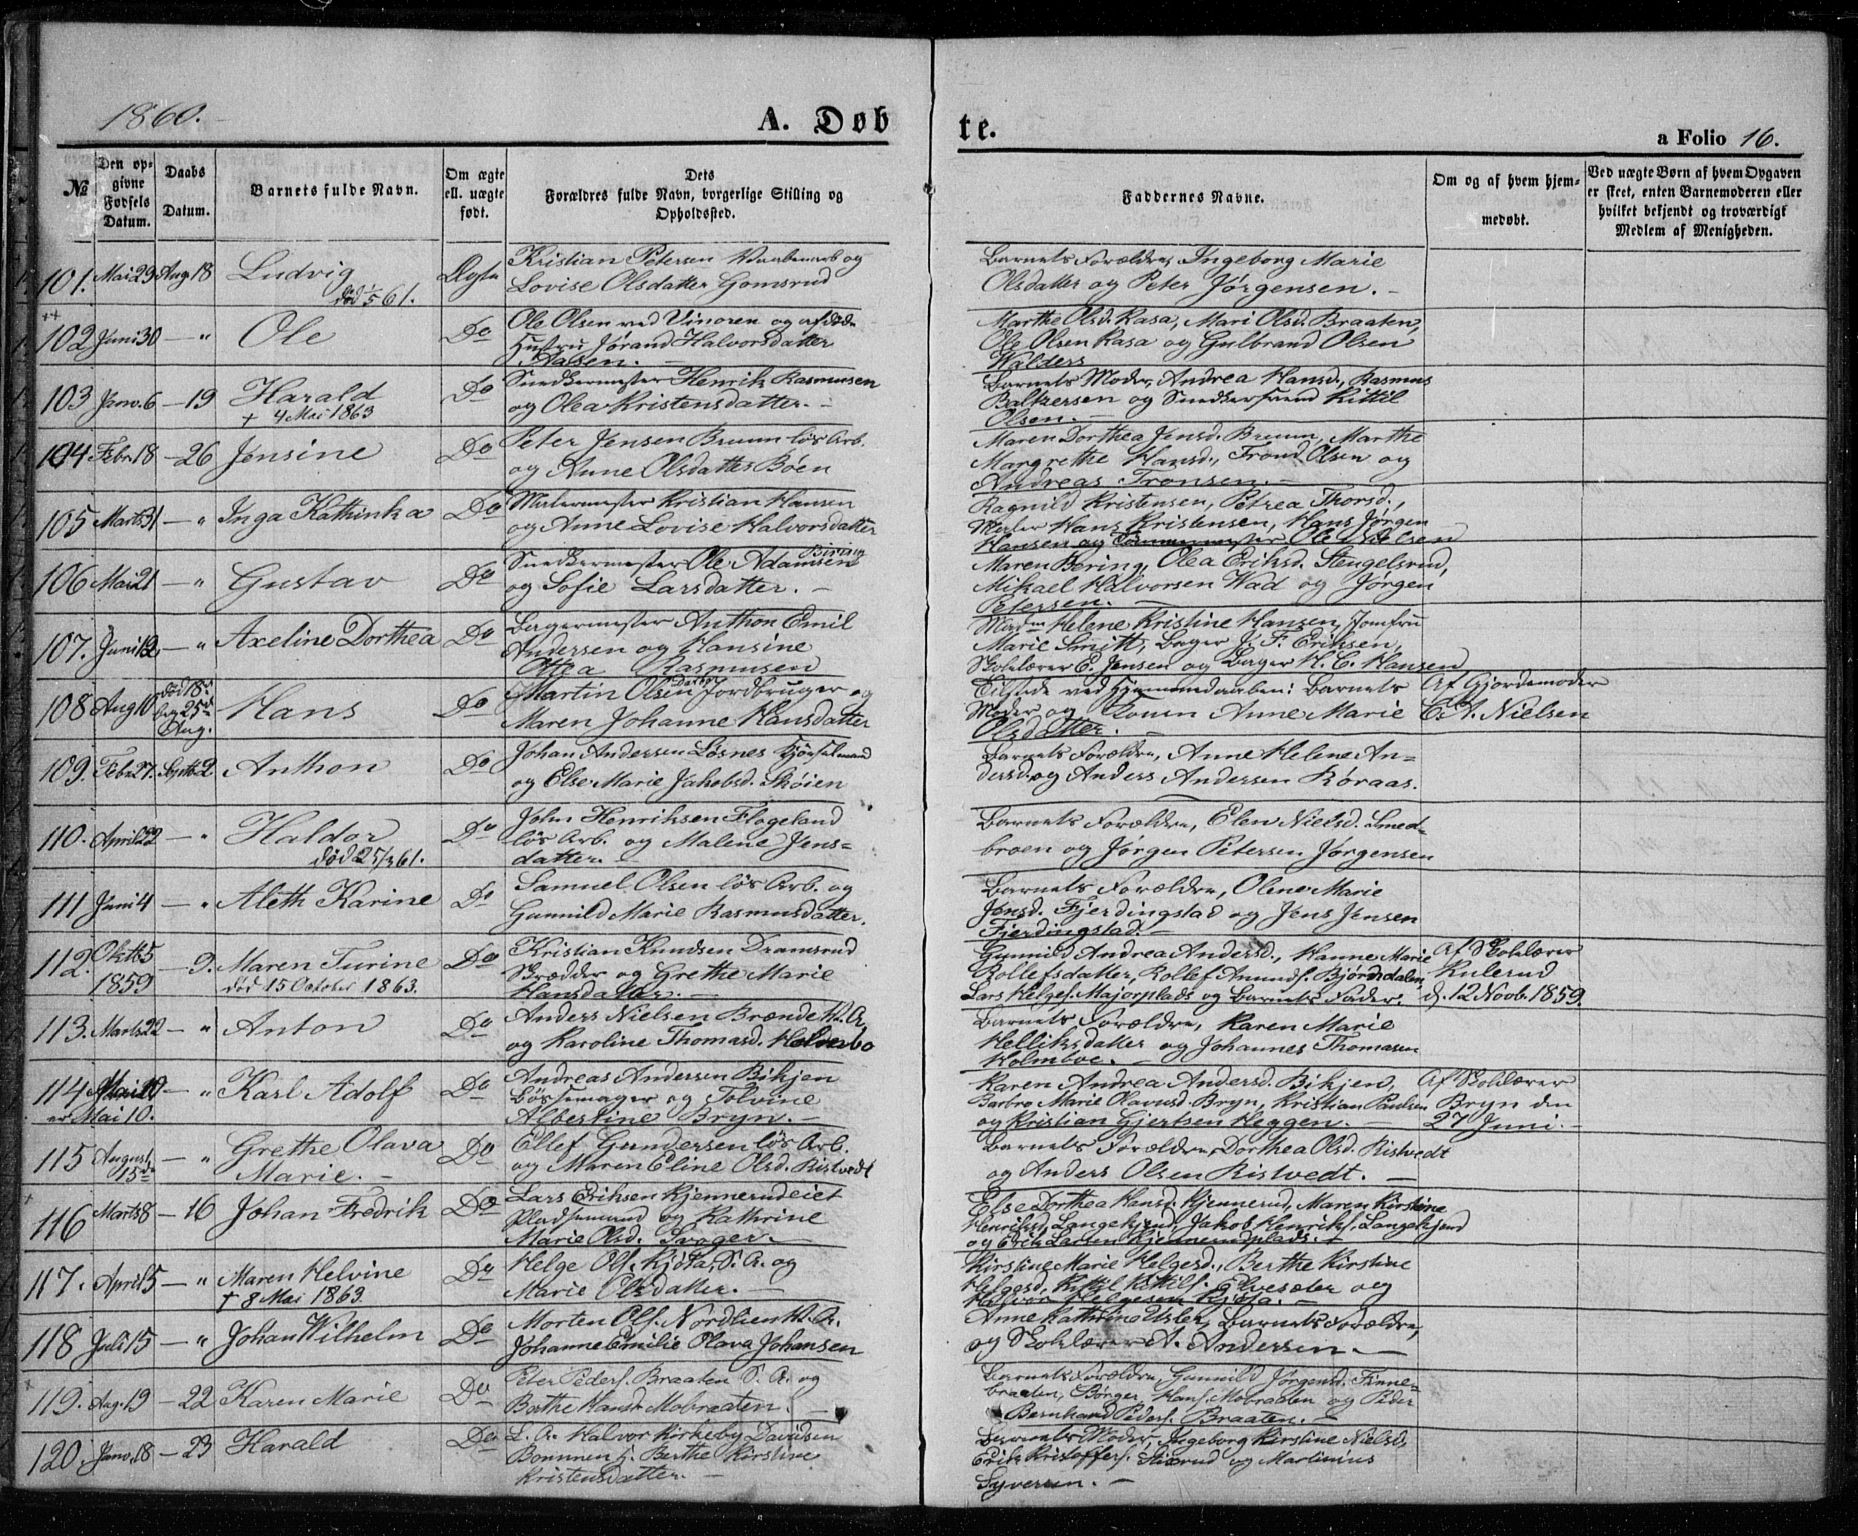 1860.
A. Døbte.
a Folio 16.
№
Den opgivne Fødsels Datum.
Daabs Datum.
Barnets fulde Navn.
Om ægte ell. uægte født.
Dets Forældres fulde Navn, borgerlige Stilling og Opholdssted.
Faddernes Navne.
Om og af hvem hjemmedøbt.
Ved uægte Børn af hvem Opgaven er skeet, enten Barnemoderen eller hvilket bekjendt og troværdigt Medlem af Menigheden.
101. Mai 23 Aug. 18 Ludvig Ægte Kristian Petersen Vaabenarb og
død 1/5 61. Lovise Olsdatter Gomsrud
Barnets Forældre, Ingeborg Marie
Olsdatter og Peter Jørgensen.
102 Juni 30 — " Ole Do Ole Olsen ved Vinoren og afdøde
Hustru Jørand Halvorsdatter
Marthe Olsd. Rasa, Mari Olsd. Braaten,
Ole Olsen Rasa og Gulbrand Olsen
Walders
103 Janv. 6 — 19 Harald Do Snedkermester Henrik Rasmusen
+ 4 Mai 1863 og Olea Kristensdatter.
Barnets Moder, Andrea Hansd., Rasmus
Baltzersen og Snedkersvend Kittil
Olsen.
104 Febr. 18 — 26 Jensine Do Peter Jensen Bruun løs Arb.
og Anne Olsdatter Bøen
Maren Dorthea Jensd. Bruun, Marthe
Margrethe Hansd., Trond Olsen og
Andreas Tronsen.
105 Marts 31 — " Inga Kathinka Do Malermester Kristian Hansen
og Anne Lovise Halvorsdatter
Ragnild Kristensen, Petrea Thorsd.,
Maler Hans Kristensen, Hans Jørgen
Hansen og Ole Nielsen
106 Mai 21 — " Gustav Do Snedkermester Ole Adamsen
Biring
og Sofie Larsdatter.
Maren Bering, Olea Eriksd. Stengelsrud,
Mikael Halvorsen Wad og Jørgen
Petersen.
107. Juni 12 — " Axeline Dorthea Do Bagermester Anthon Emil
Andersen og Hansine
Rasmusen
Madm Helene Kristine Hansen, Jomfru
Marie Smitt, Bager J. F. Eriksen,
Skolelærer E. Jensen og Bager H. C. Hansen
108 Aug 10 død 18. beg 25de Aug. Hans Do Martin Olsen Jordbruger og
Maren Johanne Hansdatter
Tilstede ved Hjemmedaaben: Barnets
Moder og Konen Anne Marie
Olsdatter.
Af Gjordemoder
C. A. Nielsen
109. Febr 27. Septb 2 Anthon Do Johan Andersen Løsnes
og Else Marie Jakobsd. Skøien
Barnets Forældre, Anne Helene An-
dersd. og Anders Andersen Røraas.
110. April 22 — " Haldor Do John Henriksen Flageland
død 25/3 61. løs Arb. og Malene Jens-
datter.
Barnets Forældre, Elen Nielsd. Smed-
broen og Jørgen Petersen Jørgensen
111 Juni 4 — " Aleth Karine Do Samuel Olsen løs Arb. og
Gunnild Marie Rasmusdatter.
Barnets Forældre, Olene Marie
Jensd. Fjerdingstad og Jens Jensen
Fjerdingstad.
112. Oktb 5 1859 — 9. Maren Turine Do Kristian Knudsen Dramsrud
død 15 October 1863. Skrædder og Grethe Marie
Hansdatter.
Gunnild Andrea Andersd., Hanne Marie
Rollefsdatter, Rollef Amunds. Bjørndalen,
Lars Helges. Majorplads og Barnets Fader.
Af Skolelærer
Rulerud
d. 12 Novb. 1859.
113. Marts 22 — " Anton Do Anders Nielsen Brænde K. A.
og Karoline Thomasd. Holmbo
Barnets Forældre, Karen Marie
Helliksdatter og Johannes Thomasen
Holmboe.
114 April 10 — " Karl Adolf Do Andreas Andersen Bikjen
er Mai 10. Bøssemager og Tolvine
Albertine Bryn.
Karen Andrea Andersd. Bikjen,
Barbro Marie Olavusd. Bryn, Kristian Paulsen
og Kristian Gjertsen Heggen.
Af Skolelærer
Bryn den
27 Juni.
115 August 15de — " Grethe Olava Do Ellef Gundersen løs Arb.
Marie. og Maren Eline Olsd. Ristvedt
Barnets Forældre, Dorthea Olsd. Ristvedt
og Anders Olsen Ristvedt.
116 Marts 8 — 16 Johan Fredrik Do Lars Eriksen Kjennerudeiet
Pladsemand og Kathrine
Marie Olsd.
Else Dorthea Hansd. Kjennerud, Maren Kirstine
Henriksd. Langekjend, Jakob Henriks. Langekjend
og Erik Larsen Kjennerudplads.
117. April 5 — " Maren Helvine Do Helge Ols. Kjøta, S. A. og
+ 8 Mai 1863 Marie Olsdatter.
Kirstine Marie Helgesd., Berthe Kirstine
Helgesd., Kittil Kittils. Elvesæter og
Halvor Helgesen Kjøta.
118 Juli 15 — " Johan Wilhelm Do Morten Ols. Nordlien K. A.
Johanne Emilie Olava Johansen
Anne Kathrine Usler, Barnets Forældre,
og Skolelærer A. Andersen.
119. Aug. 19 — 22 Karen Marie Do Peter Peders. Braaten S. A. og
Berthe Hansd. Mobraaten.
Barnets Forældre, Gunnild Jørgensd. Finne-
braaten, Børger Hans. Mobraaten og Peder
Bernhard Peders. Braaten.
120. Janv. 18 — 23 Harald Do L. A. Halvor Kirkeby Davidsen
Bommen h. Berthe Kirstine
Kristensdatter.
Barnets Moder, Ingeborg Kirstine Nielsd.,
Erik Kristoffers. Skarud og Martinius
Syversen.